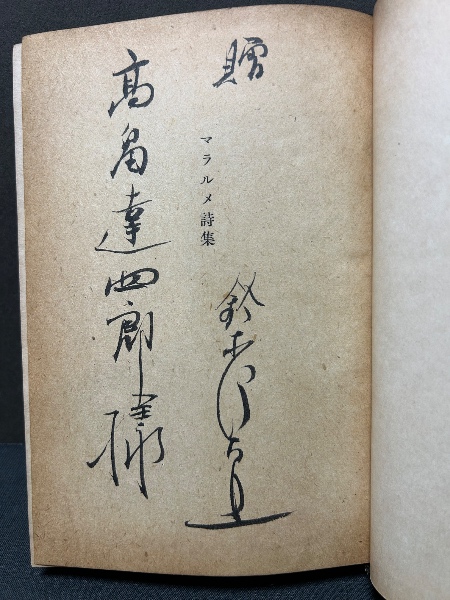 贈
鈴木信太郎
マラルメ詩集
高畠達四郎様